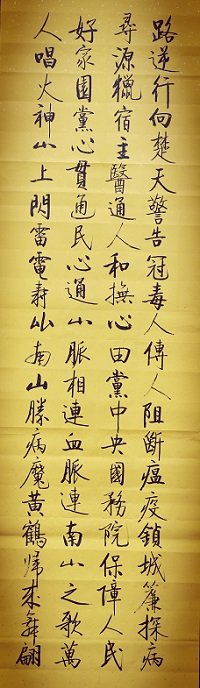 路逆行向楚天警告冠毒人傳人阻断瘟疫鎖城簾探病
尋源獵宿主醫通人和撫心田黨中央國務院保障人民
好家園黨心貫通民心通山脈相連血脈連南山之歌萬
人唱火神山上閃雷電壽山南山勝病魔黃鶴歸来舞翩